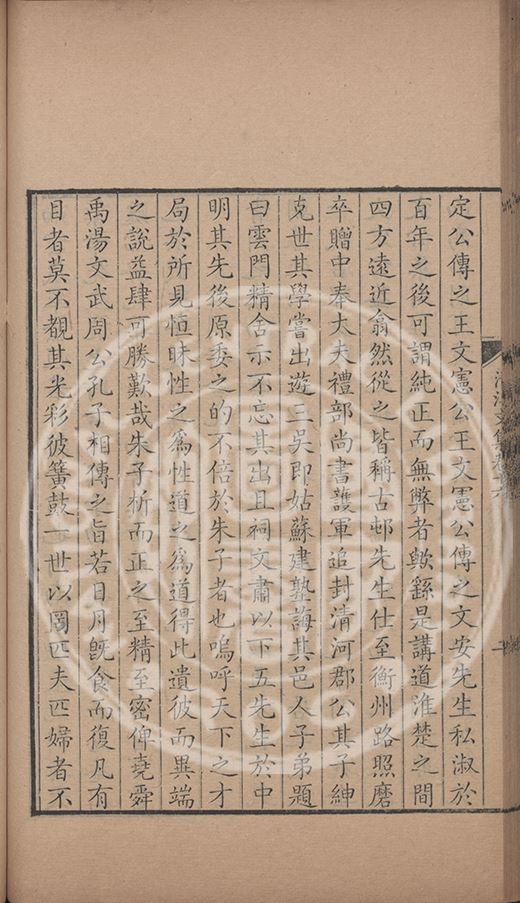 定公傳之王文憲公王文憲公傳之文安先生私淑於
百年之後可謂純正而無弊者歟繇是講道淮楚之間
四方遠近翕然從之皆稱古邨先生仕至衡州路照磨
卒贈中奉大夫禮部尚書護軍追封清河郡公其子紳
克世其學嘗出遊三吳即姑蘇建塾誨其邑人子弟題
曰雲門精舍示不忘其出且祠文肅以下五先生於中
明其先後原委之的不倍於朱子者也嗚呼天下之才
局於所見恒昧性之爲性道之爲道得此遺彼而異端
之說益肆可勝歎哉朱子析而正之至精至密俾堯舜
禹湯文武周公孔子相傳之旨若日月旣食而復凡有
目者莫不覩其光彩彼簧鼓一世以罔匹夫匹婦者不